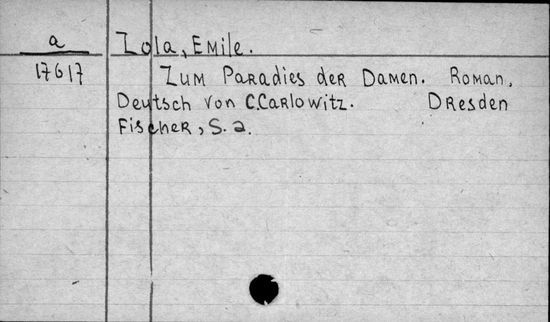 a
Zola, Emile.
17617
Zum Paradies der Damen. Roman.
Deutsch von C.Carlowitz. Dresden
Fischer, S. a.